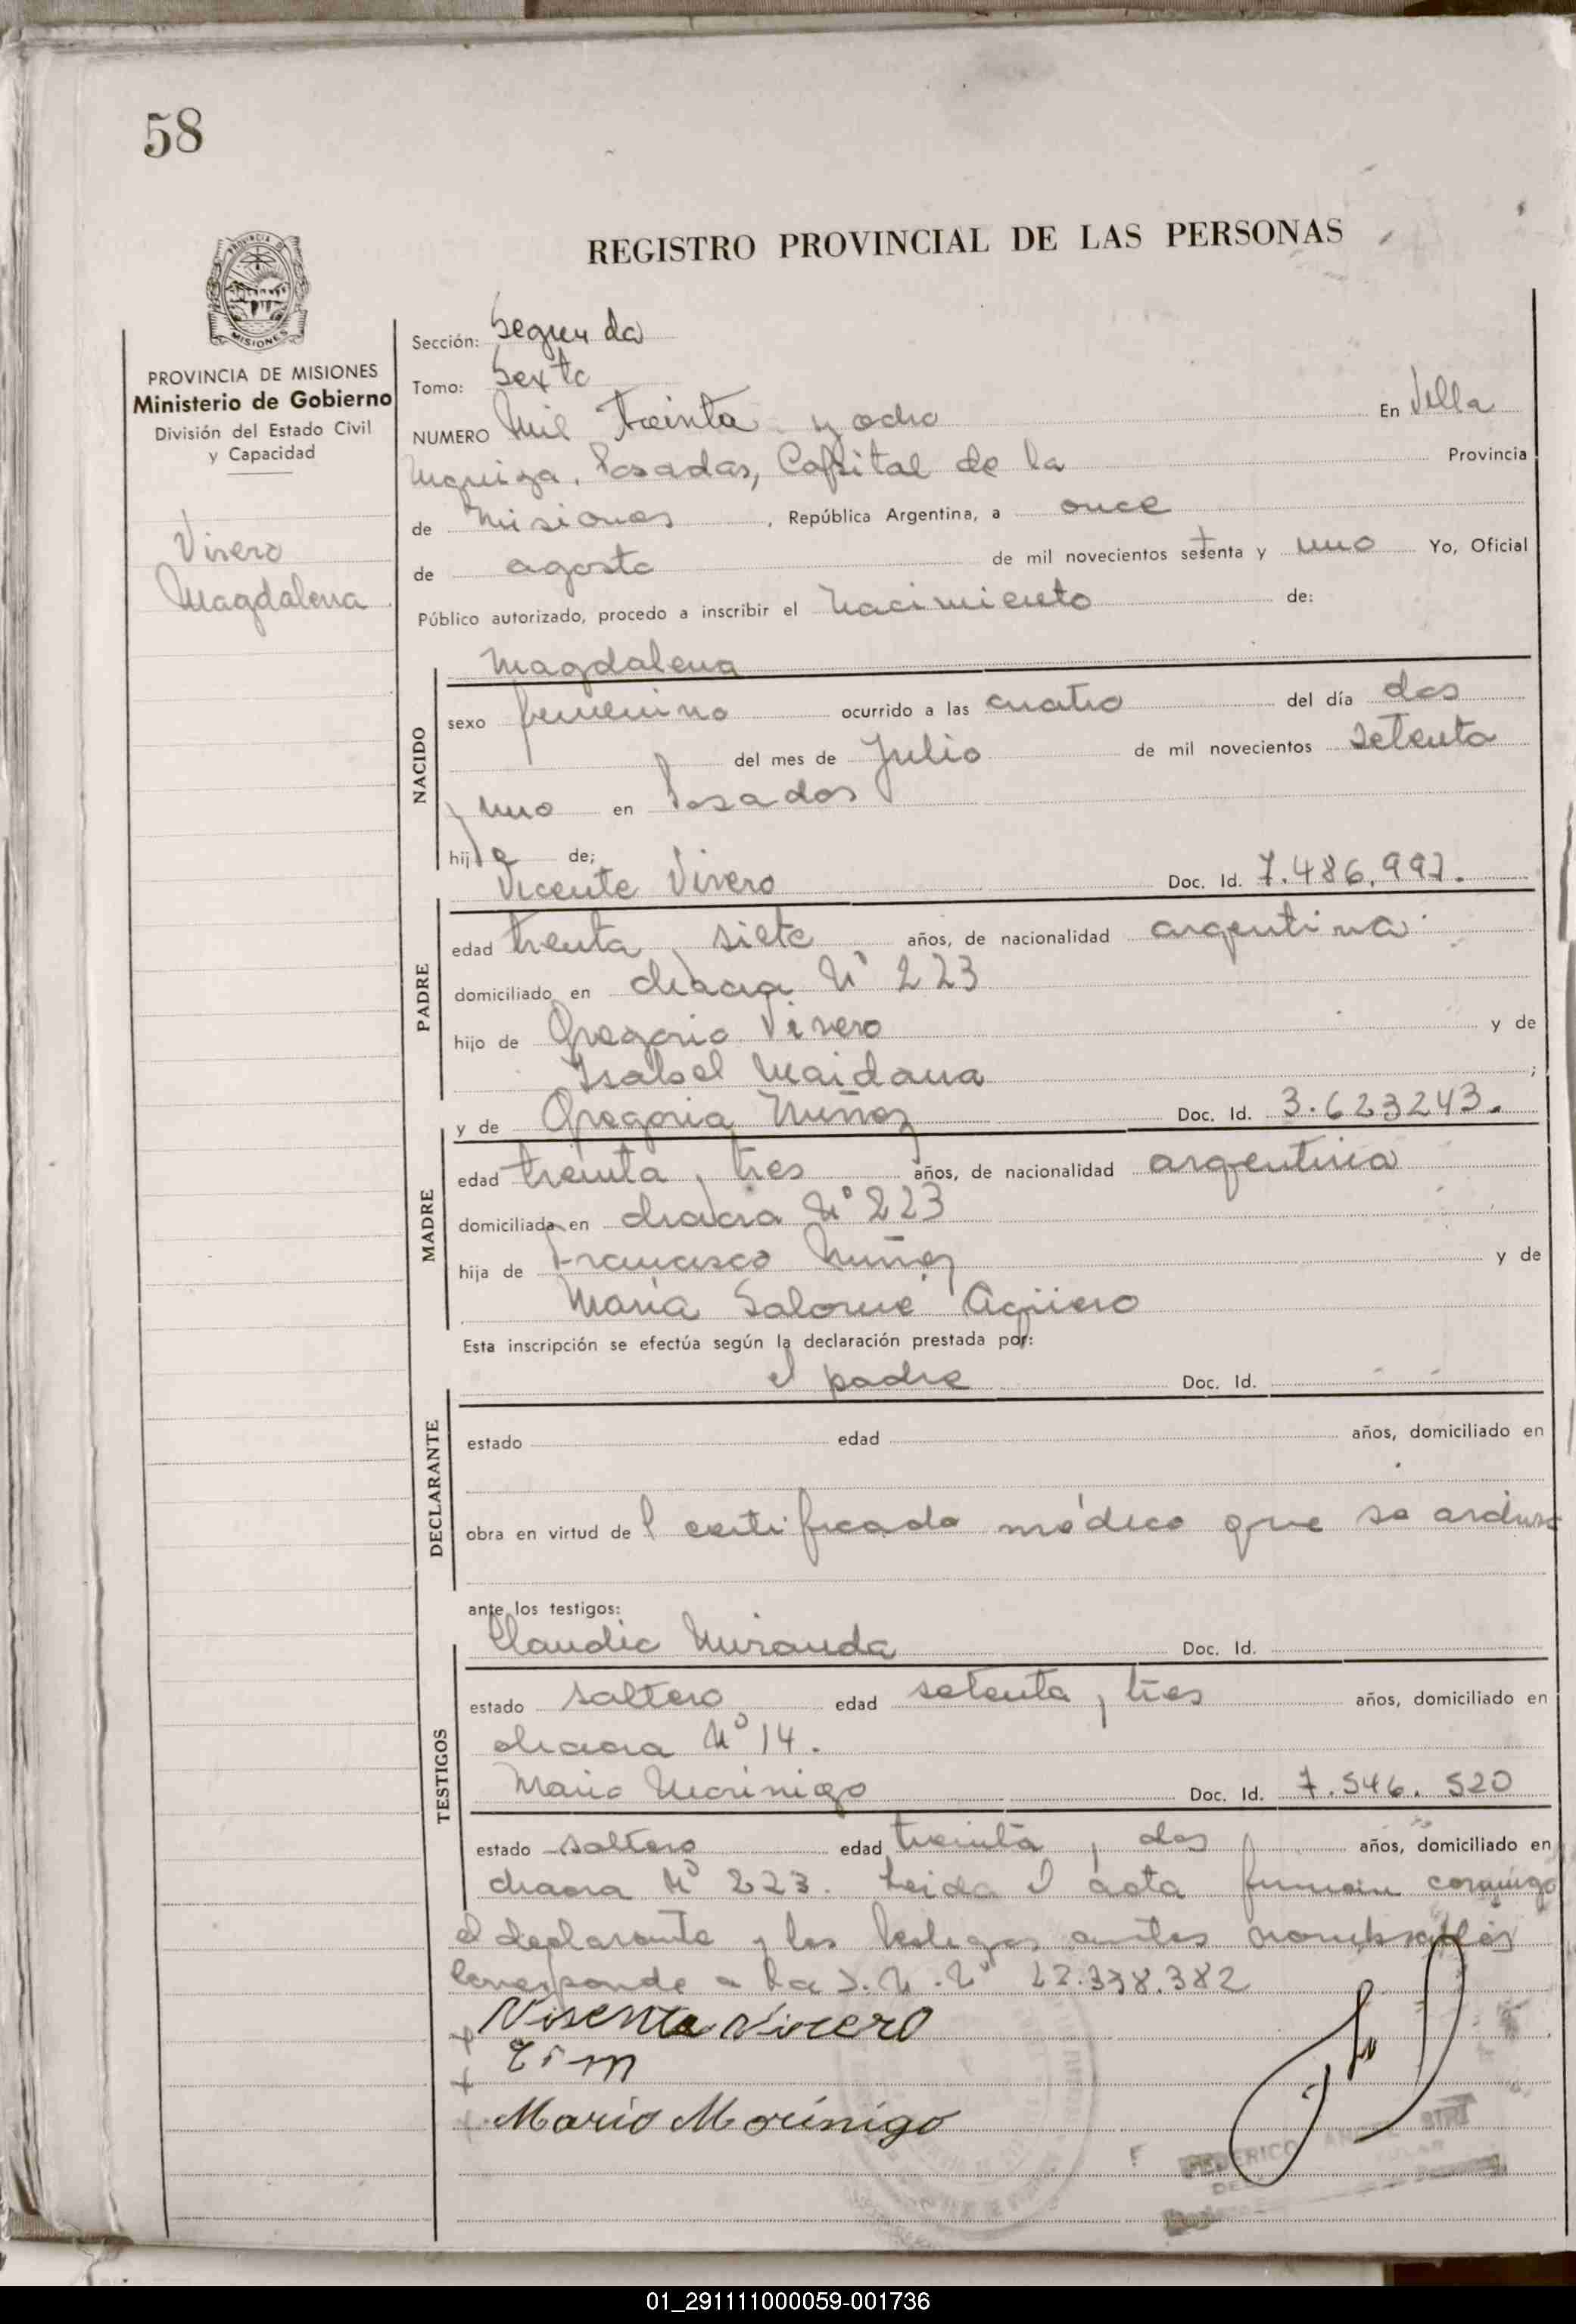 58
REGISTRO PROVINCIAL DE LAS PERSONAS
PROVINCIA DE
MISIONES
PROVINCIA DE MISIONES
Ministerio de Gobierno
División del Estado Civil
y Capacidad
Vivero
Magdalena
Sección: Segunda
Tomo: Sexto
NUMERO Mil treinta y ocho En Villa
Urquiza, Posadas, Capital de la Provincia
de Misiones, República Argentina, a once
de agosto de mil novecientos setenta y uno Yo, Oficial
Público autorizado, procedo a inscribir el nacimiento de:
Magdalena
NACIDO
sexo femenino ocurrido a las cuatro del día dos
del mes de Julio de mil novecientos setenta
y uno en Posadas
hija de;
Vicente Vivero Doc. Id. 7.486.997.
PADRE
edad treinta y siete años, de nacionalidad argentina
domiciliado en chacra Nº 223
hijo de Gregorio Vivero y de
Isabel Maidana ;
y de Gregoria Nuñez Doc. Id. 3.623243.
MADRE
edad treinta y tres años, de nacionalidad argentina
domiciliada en chacra Nº 223
hija de Francisco Nuñez y de
María Salomé Agüero
Esta inscripción se efectúa según la declaración prestada por:
el padre Doc. Id.
DECLARANTE
estado edad años, domiciliado en
obra en virtud del certificado médico que se archiva
ante los testigos:
Claudio Miranda Doc. Id.
TESTIGOS
estado soltero edad setenta y tres años, domiciliado en
chacra Nº 14.
Mario Morinigo Doc. Id. 7.546.520
estado soltero edad treinta y dos años, domiciliado en
chacra Nº 223. Leida el acta firman conmigo
el declarante y los testigos antes nombrados
Corresponde a la D.N.I. Nº 22.338.382
Visente Vivero
Mario Morínigo
01_291111000059-001736